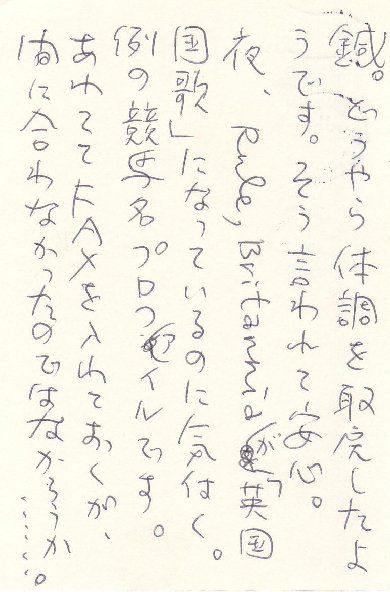 鍼。どうやら体調を取戻したよ
うです。そう言われて安心。
夜、Rule, Britanniaが「英国
国歌」になっているのに気付く。
例の競馬名プロフィルです。
あわててFAXを入れておくが、
間に合わなかったのではなかろうか
……。